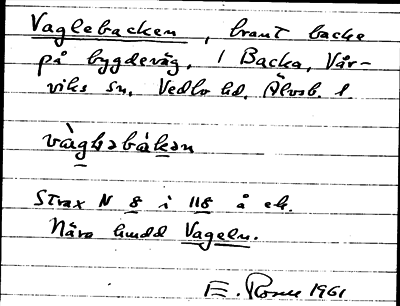 Vaglebacken, brant backe
på bygdeväg, i Backa, Vår-
viks sn, Vedbo hd, Älvsb. l.
vàgləbàkən
Strax N 8 i 118 å ek.
Nära kudd Vageln.
E. Rosne 1961